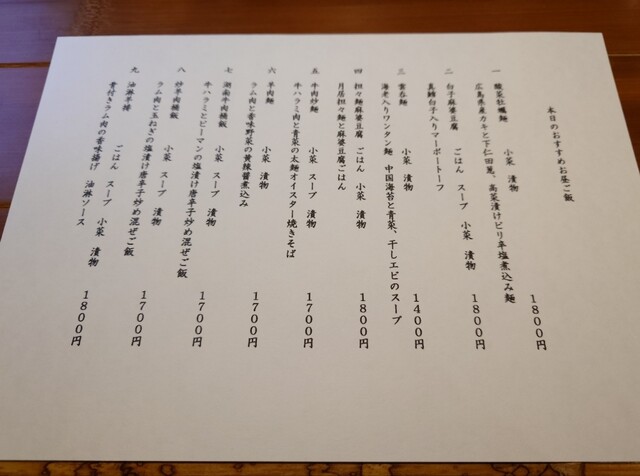 本日のおすすめお昼ご飯
一　酸菜牡蠣麺　小菜　漬物　１８００円
広島県産カキと下仁田葱、高菜漬けピリ辛塩煮込み麺
二　白子麻婆豆腐　ごはん　スープ　小菜　漬物　１８００円
真鱈白子入りマーボートーフ
三　雲呑麺　小菜　漬物　１４００円
海老入りワンタン麺　中国海苔と青菜、干しエビのスープ
四　担々麺麻婆豆腐　ごはん　小菜　漬物　１８００円
月居担々麺と麻婆豆腐ごはん
五　牛肉炒麺　小菜　スープ　漬物　１７００円
牛ハラミ肉と青菜の太麺オイスター焼きそば
六　羊肉麺　小菜　漬物　１７００円
ラム肉と香味野菜の黄辣醤煮込み
七　湖南牛肉桶飯　小菜　スープ　漬物　１７００円
牛ハラミとピーマンの塩漬け唐辛子炒め混ぜご飯
八　炒羊肉桶飯　小菜　スープ　漬物　１７００円
ラム肉と玉ねぎの塩漬け唐辛子炒め混ぜご飯
九　油淋羊排　ごはん　スープ　小菜　漬物　１８００円
骨付きラム肉の香味揚げ　油淋ソース